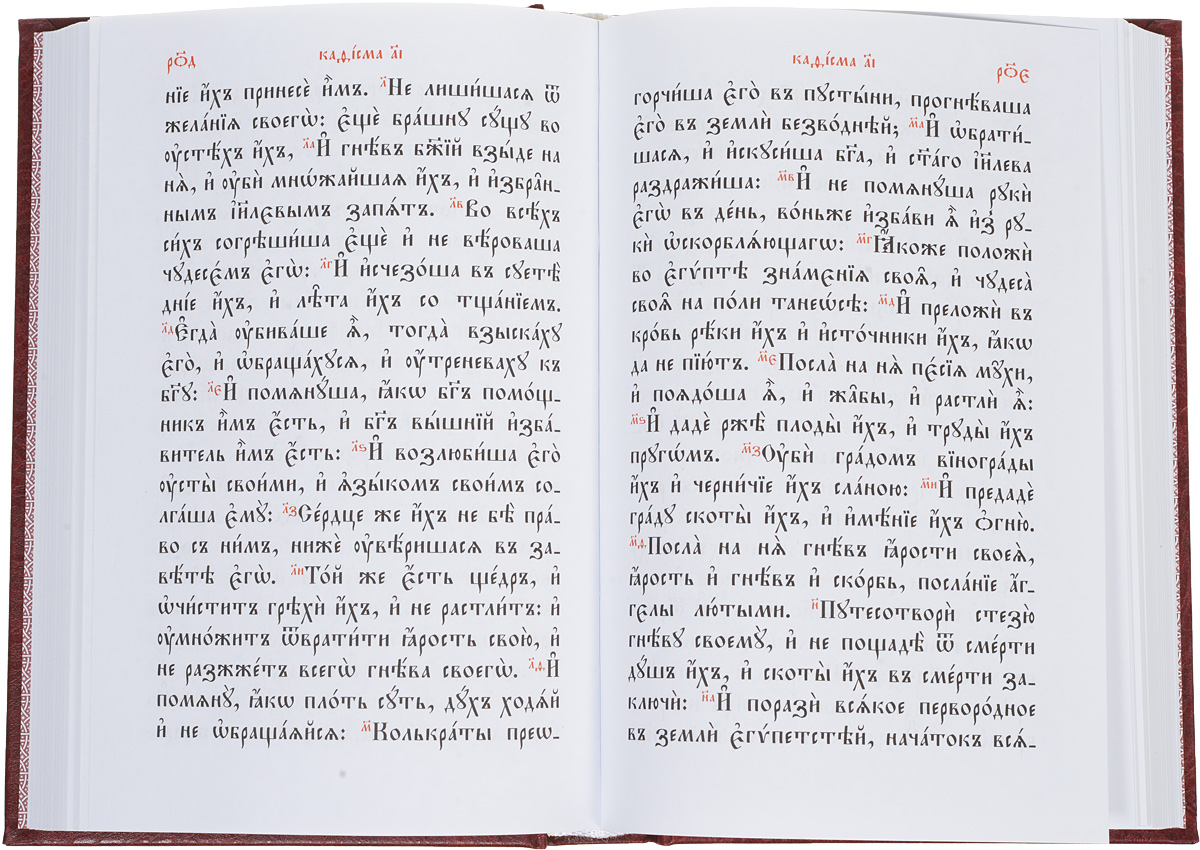 ро҃д
каѳі́сма а҃і
нїе и҆́хъ принесѐ и҆̀мъ. л҃ Не лиши́шасѧ ѿ
жела́нїѧ своегѡ̀: є҆щѐ бра́шнꙋ сꙋ́щꙋ во
ᲂу҆стѣ́хъ и҆́хъ, л҃а И҆ гнѣ́въ бж҃їй взы́де на
нѧ̀, и҆ ᲂу҆бѝ мнѡ́жайшаѧ и҆́хъ, и҆ и҆збра̑н-
нымъ і҆и҃левымъ запѧ́тъ. л҃в Во всѣ́хъ
си́хъ согрѣши́ша є҆щѐ и҆ не вѣ́роваша
чꙋдесє́мъ є҆гѡ̀: л҃г И҆ и҆счезо́ша въ сꙋетѣ̀
дні́е и҆́хъ, и҆ лѣ̑та и҆́хъ со тща́нїемъ.
л҃д Є҆гда̀ ᲂу҆бива́ше ѧ҆̀, тогда̀ взыска́хꙋ
є҆го̀, и҆ ѡ҆браща́хꙋсѧ, и҆ ᲂу҆́треневахꙋ къ
бг҃ꙋ: л҃є И҆ помѧнꙋ́ша, ꙗ҆́кѡ бг҃ъ помо́щ-
никъ и҆̀мъ є҆́сть, и҆ бг҃ъ вы́шнїй и҆зба́-
витель и҆̀мъ є҆́сть: л҃ѕ И҆ возлюби́ша є҆го̀
ᲂу҆сты̀ свои́ми, и҆ ѧ҆зы́комъ свои́мъ со-
лга́ша є҆мꙋ̀: л҃з Се́рдце же и҆́хъ не бѣ̀ пра́-
во съ ни́мъ, нижѐ ᲂу҆вѣ́ришасѧ въ за-
вѣ́тѣ є҆гѡ̀. л҃и То́й же є҆́сть ще́дръ, и҆
ѡ҆чи́ститъ грѣхѝ и҆́хъ, и҆ не растли́тъ: и҆
ᲂу҆мно́житъ ѿврати́ти ꙗ҆́рость свою̀, и҆
не разжже́тъ всегѡ̀ гнѣ́ва своегѡ̀. л҃ѳ И҆
помѧнꙋ̀, ꙗ҆́кѡ пло́ть сꙋ́ть, дꙋ́хъ ходѧ́й
и҆ не ѡ҆браща́ѧйсѧ: м҃ Колькра́ты преѡ-
каѳі́сма а҃і
ро҃є
горчи́ша є҆го̀ въ пꙋсты́ни, прогнѣ́ваша
є҆го̀ въ землѝ безво́днѣй; м҃а И҆ ѡ҆брати́-
шасѧ, и҆ и҆скꙋси́ша бг҃а, и҆ ст҃а́го і҆и҃лева
раздражи́ша: м҃в И҆ не помѧнꙋ́ша рꙋкѝ
є҆гѡ̀ въ де́нь, во́ньже и҆зба́ви ѧ҆̀ и҆з̾ рꙋ-
кѝ ѡ҆скорблѧ́ющагѡ: м҃г Ꙗ҆́коже положѝ
во є҆гѵ́птѣ зна́мєнїѧ своѧ̑, и҆ чꙋдеса̀
своѧ̑ на по́ли танеѡ́сѣ: м҃д И҆ преложѝ въ
кро́вь рѣ́ки и҆́хъ и҆ и҆сто́чники и҆́хъ, ꙗ҆́кѡ
да не пїю́тъ. м҃є Посла̀ на нѧ̀ пе́сїѧ мꙋ́хи,
и҆ поѧдо́ша ѧ҆̀, и҆ жа̑бы, и҆ растлѝ ѧ҆̀:
м҃ѕ И҆ дадѐ ржѣ̀ плоды̀ и҆́хъ, и҆ трꙋды̀ и҆́хъ
прꙋгѡ́мъ. м҃з Оу҆бѝ гра́домъ вїногра́ды
и҆́хъ и҆ черни́чїе и҆́хъ сла́ною: м҃и И҆ предадѐ
гра́дꙋ скоты̀ и҆́хъ, и҆ и҆мѣ́нїе и҆́хъ ѻ҆гню̀.
м҃ѳ Посла̀ на нѧ̀ гнѣ́въ ꙗ҆́рости своеѧ̀,
ꙗ҆́рость и҆ гнѣ́въ и҆ ско́рбь, посла́нїе а҆́г-
гєлы лю́тыми. н҃ Пꙋтесотворѝ стезю̀
гнѣ́вꙋ своемꙋ̀, и҆ не пощадѣ̀ ѿ сме́рти
дꙋ́шъ и҆́хъ, и҆ скоты̀ и҆́хъ въ сме́рти за-
ключѝ: н҃а И҆ поразѝ всѧ́кое перворо́дное
въ землѝ є҆гѵ́петстѣй, нача́токъ всѧ́-